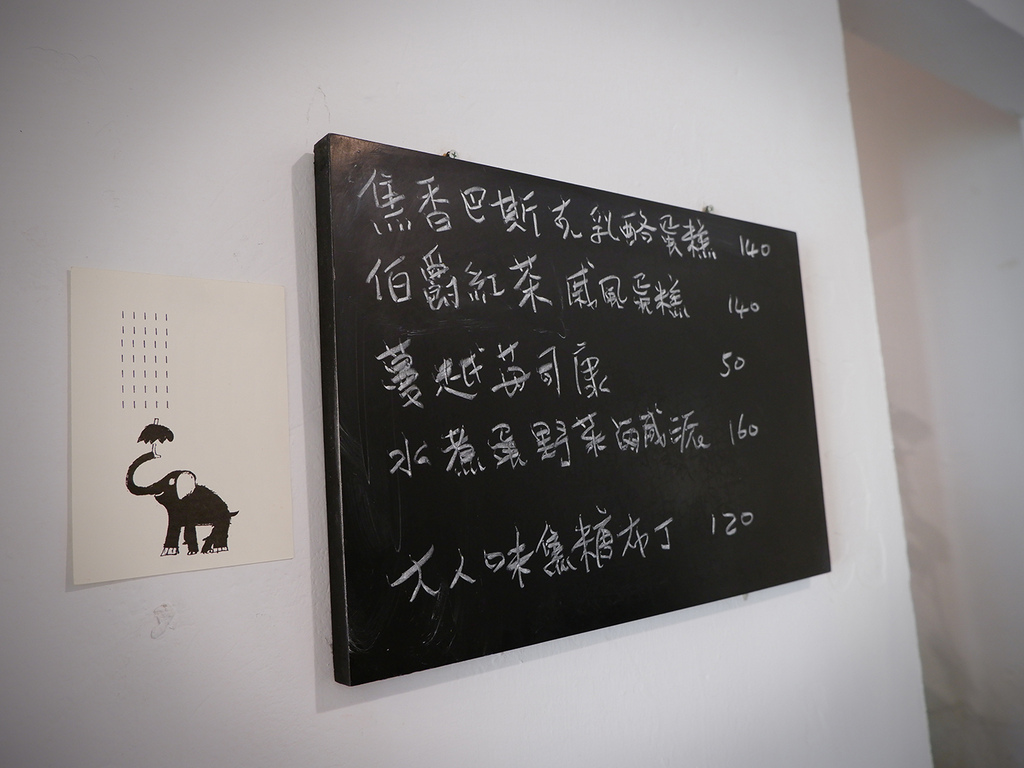 焦香巴斯克乳酪蛋糕 140
伯爵紅茶戚風蛋糕 140
蔓越莓司康 50
水煮蛋野菜鹹派 160
大人味焦糖布丁 120